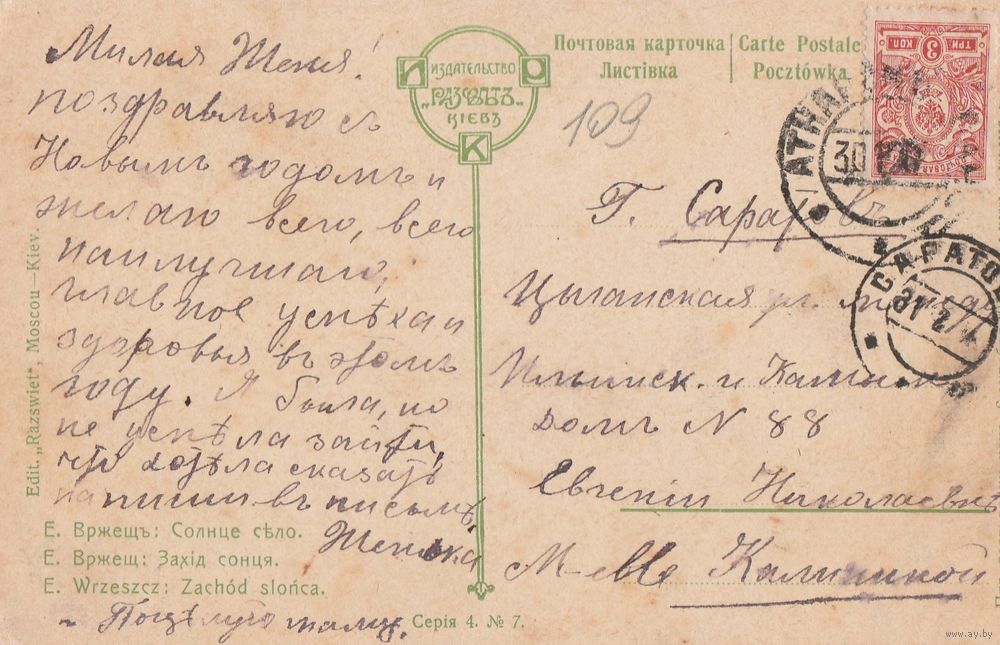 Милая Женя!
поздравляю съ
Новымъ годомъ и
желаю всего, всего
наилучшаго,
главное успѣха и
здоровья въ этомъ
году. Я была, но
не успѣла зайти,
что хотѣла сказать
напиши въ письмѣ.
Женька
Поцѣлуй
ИЗДАТЕЛЬСТВО
„РАЗСВѢТЪ“
КІЕВЪ
К
Почтовая карточка
Листівка
Carte Postale
Pocztówka
109
3
ТРИ КОП.
ПОЧТОВАЯ
30
САРАТО
31
Г. Саратовъ
Цыганская ул. между
Ильинск. и Камыш
домъ N 88
Евгеніи Николаевнѣ
M-elle Калининой
Edit. „Razswiet“, Moscou—Kiev.
Е. Вржещъ: Солнце сѣло.
Е. Вржещ: Захід сонця.
E. Wrzeszcz: Zachód słońca.
Серія 4. № 7.
www.ay.by